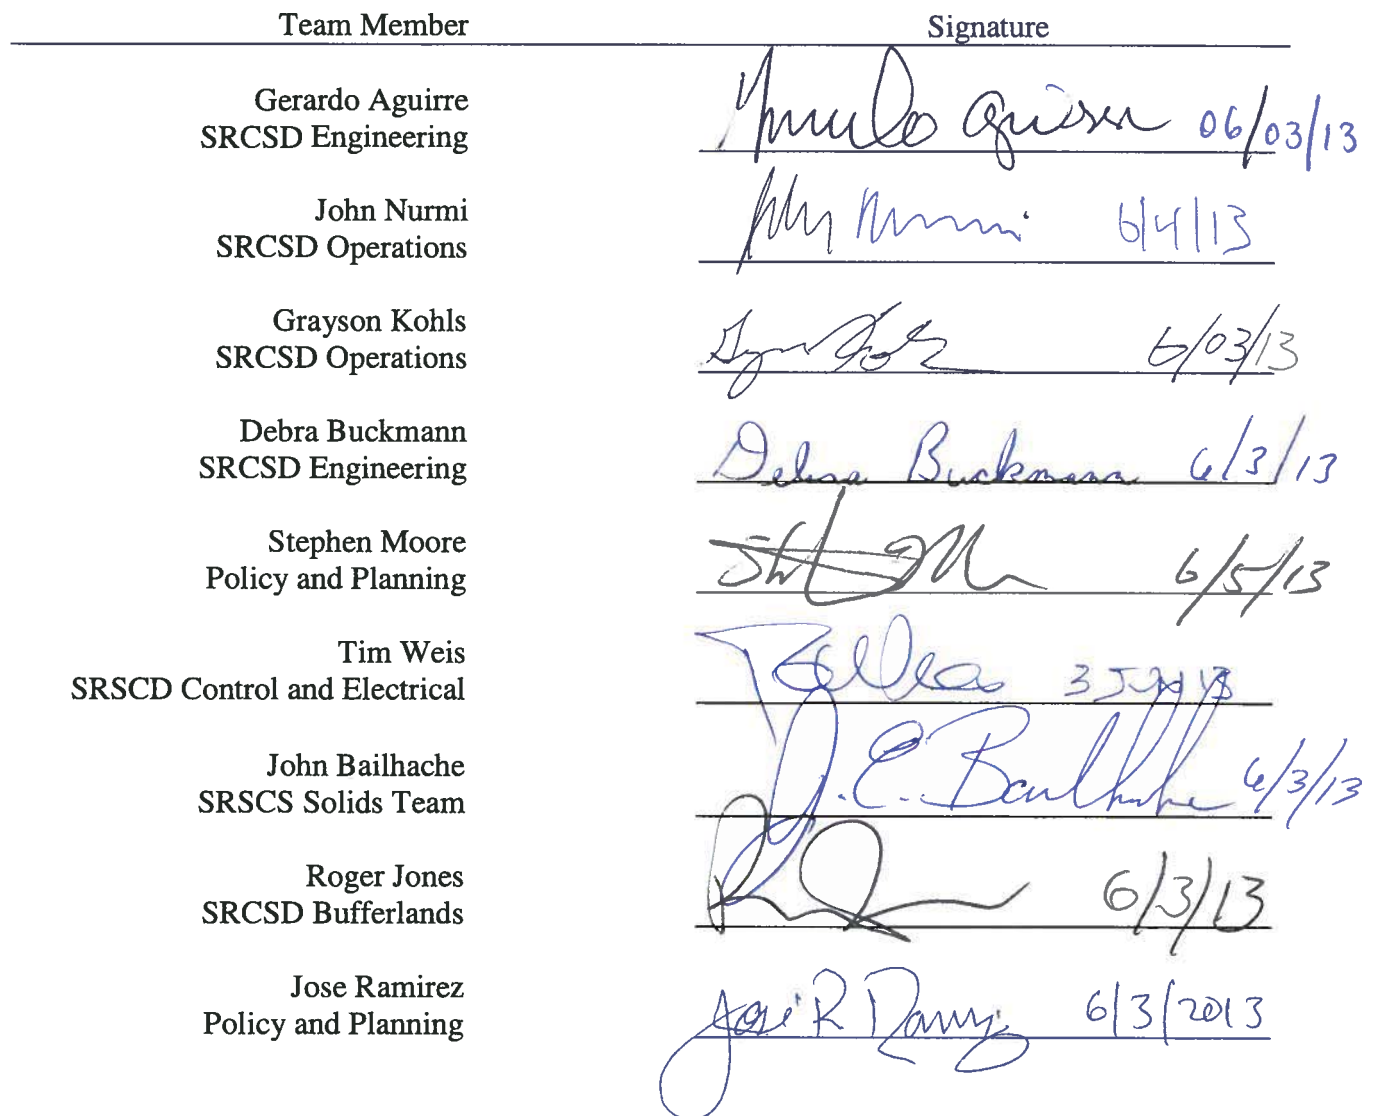 Team Member Signature
Gerardo Aguirre
SRCSD Engineering
06/03/13
John Nurmi
SRCSD Operations
John Nurmi 6/4/13
Grayson Kohls
SRCSD Operations
6/03/13
Debra Buckmann
SRCSD Engineering
Debra Buckmann 6/3/13
Stephen Moore
Policy and Planning
6/5/13
Tim Weis
SRSCD Control and Electrical
John Bailhache
SRSCS Solids Team
J. E. Bailhache 6/3/13
Roger Jones
SRCSD Bufferlands
6/3/13
Jose Ramirez
Policy and Planning
6/3/2013